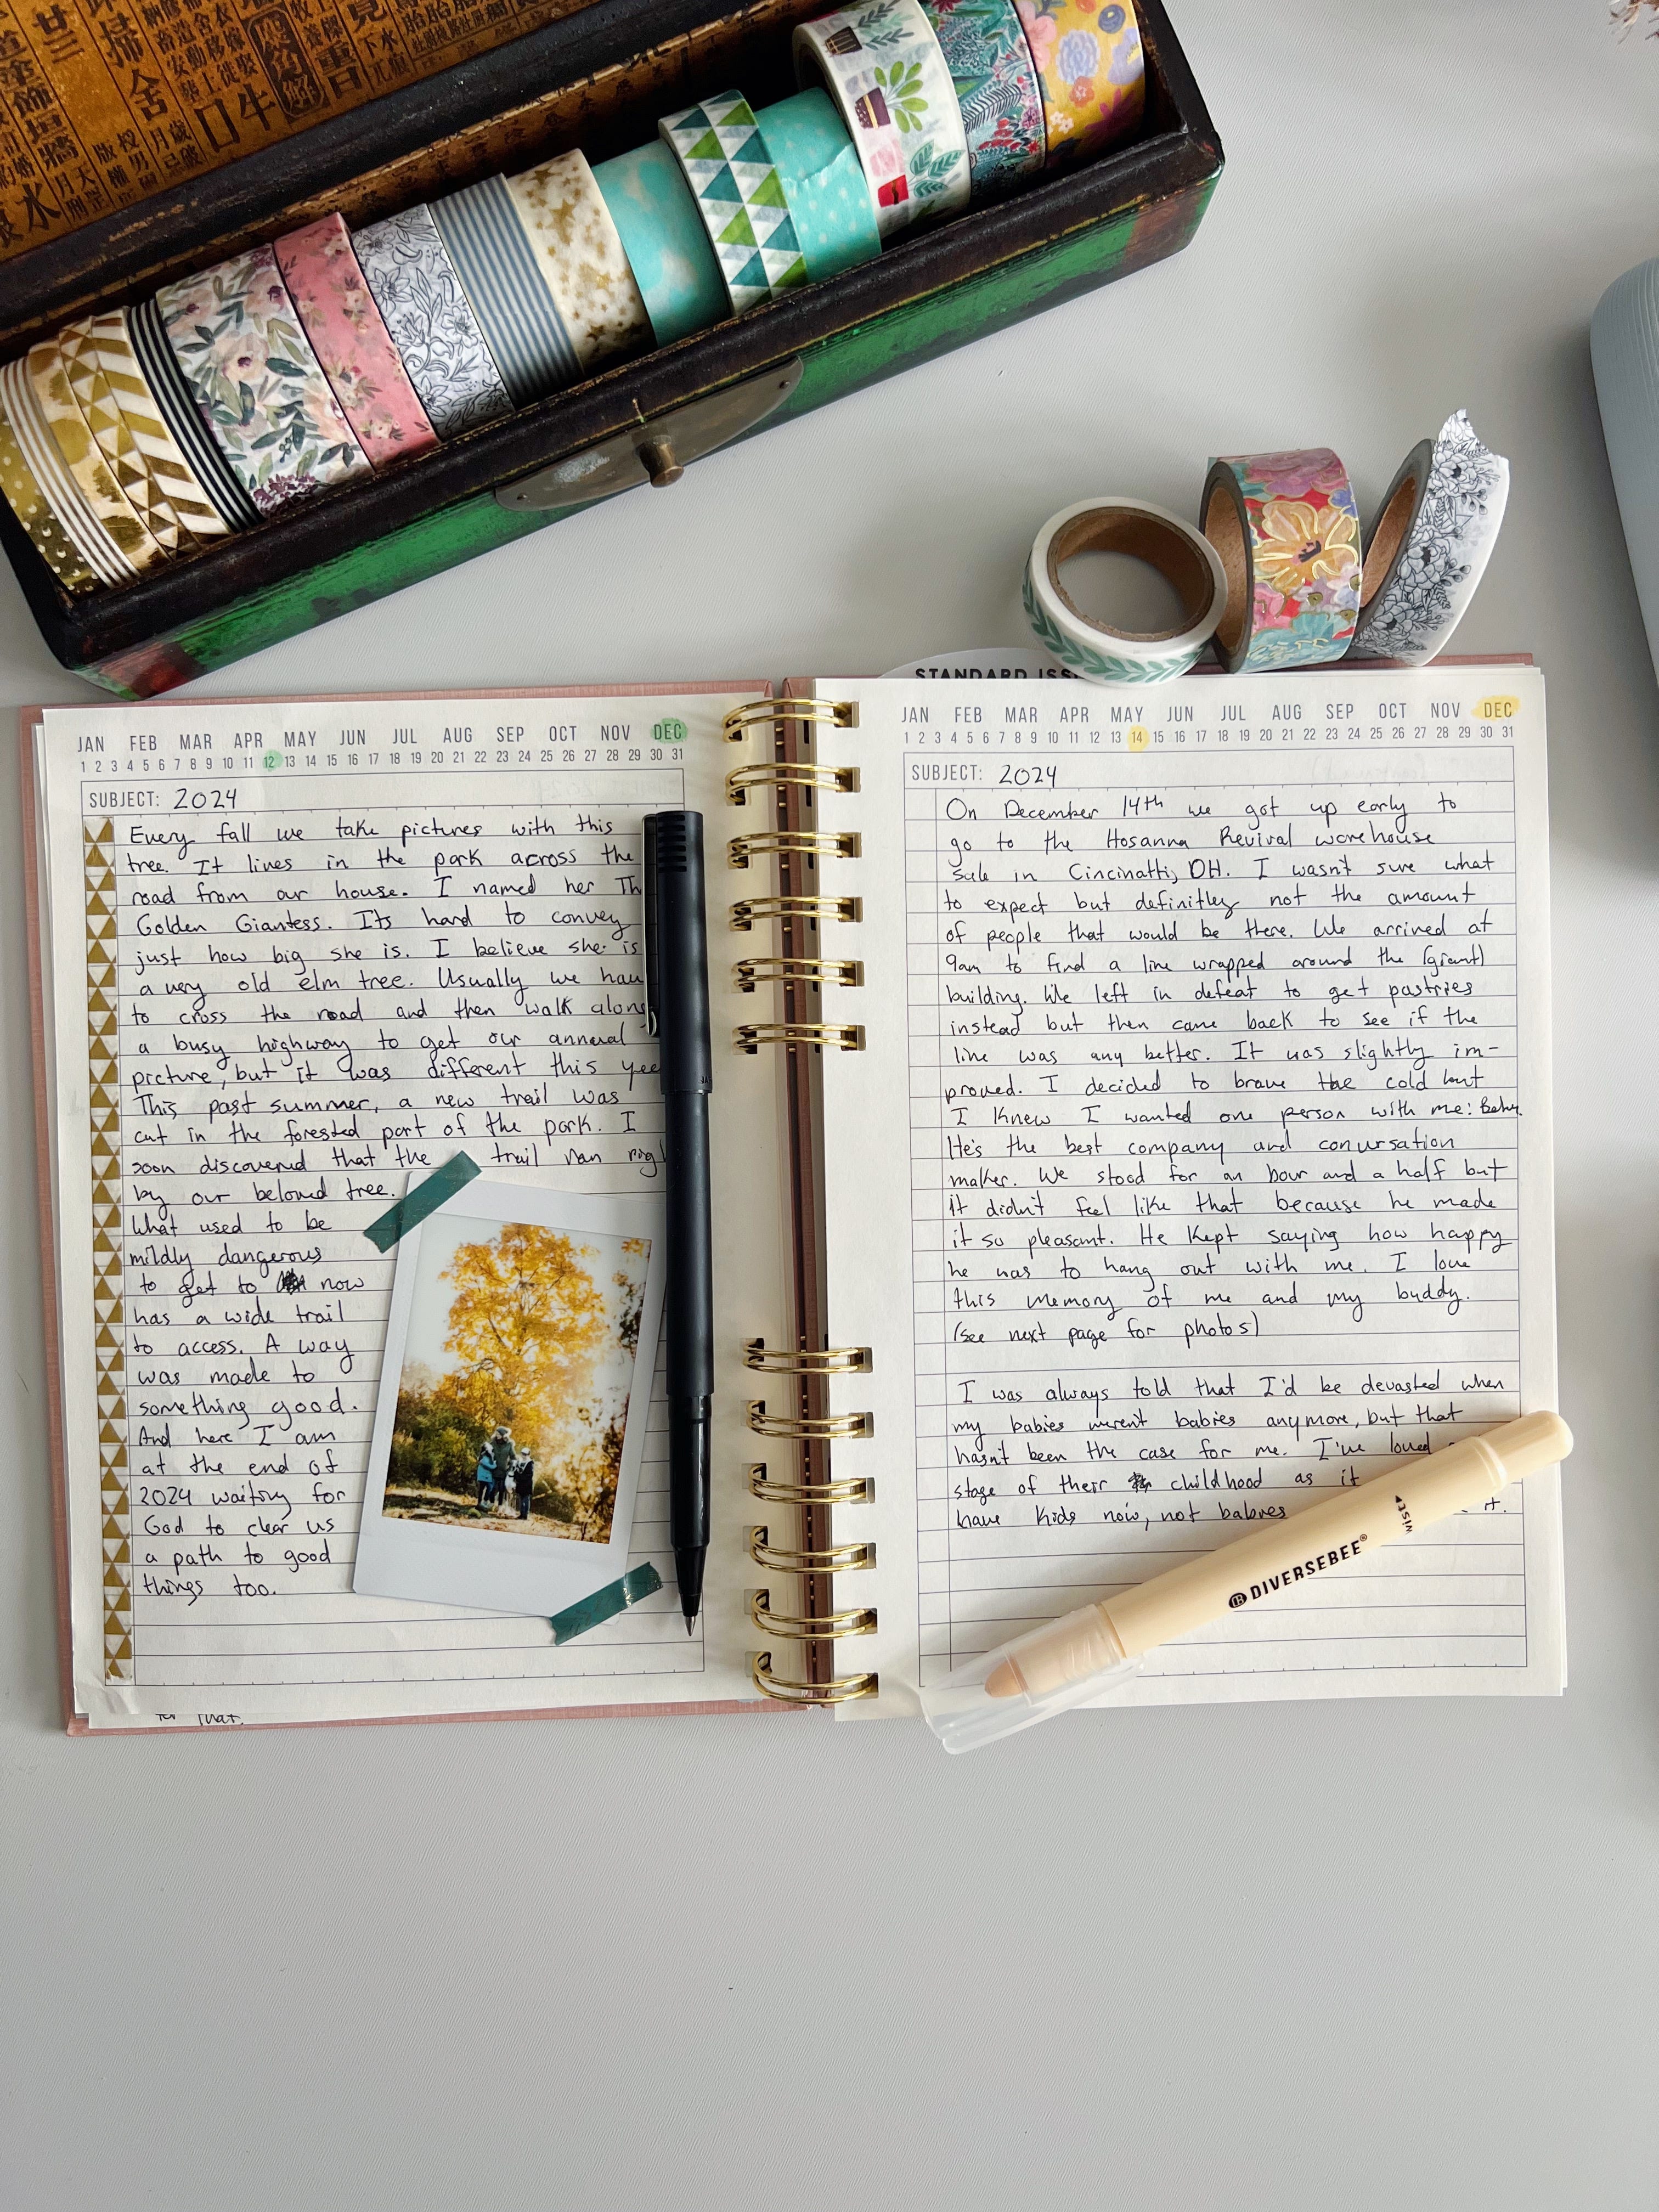 廿
掃舍
口牛
水
重
STANDARD ISS
JAN FEB MAR APR MAY JUN JUL AUG SEP OCT NOV DEC
1 2 3 4 5 6 7 8 9 10 11 12 13 14 15 16 17 18 19 20 21 22 23 24 25 26 27 28 29 30 31
SUBJECT: 2024
Every fall we take pictures with this
tree. It lives in the park across the
road from our house. I named her Th
Golden Giantess. Its hard to convey
just how big she is. I believe she is
a very old elm tree. Usually we hav
to cross the road and then walk along
a busy highway to get our annual
picture, but it was different this yea
This past summer, a new trail was
cut in the forested part of the park. I
soon discovered that the trail ran righ
by our beloved tree.
What used to be
mildly dangerous
to get to now
has a wide trail
to access. A way
was made to
something good.
And here I am
at the end of
2024 waiting for
God to clear us
a path to good
things too.
for that.
JAN FEB MAR APR MAY JUN JUL AUG SEP OCT NOV DEC
1 2 3 4 5 6 7 8 9 10 11 12 13 14 15 16 17 18 19 20 21 22 23 24 25 26 27 28 29 30 31
SUBJECT: 2024
On December 14th we got up early to
go to the Hosanna Revival warehouse
sale in Cincinatti, OH. I wasn't sure what
to expect but definitley not the amount
of people that would be there. We arrived at
9am to find a line wrapped around the (giant)
building. We left in defeat to get pastries
instead but then came back to see if the
line was any better. It was slightly im-
proved. I decided to brave the cold but
I knew I wanted one person with me:
He's the best company and conversation
maker. We stood for an hour and a half but
it didn't feel like that because he made
it so pleasant. He kept saying how happy
he was to hang out with me. I love
this memory of me and my buddy.
(see next page for photos)
I was always told that I'd be devasted when
my babies weren't babies anymore, but that
hasn't been the case for me. I've loved
stage of their childhood as it
have kids now, not babies it.
DIVERSEBEE®
TWIST